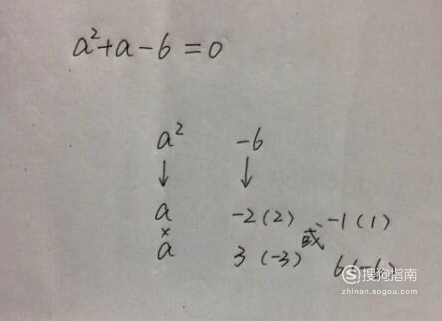 a²+a-6=0
a² -6
↓ ↓
a -2(2) 或 -1(1)
×
a 3(-3) 6(-6)
搜狗指南
zhinan.sogou.com